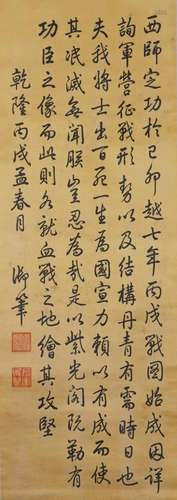 西師定功於己卯越七年丙戌戰圖始成因詳
詢軍營征戰形勢以及結構丹青有需時日也
夫我將士出百死一生為國宣力賴以有成而使
其泯滅無聞朕豈忍為哉是以紫光閣既勒有
功臣之像而此則各就血戰之地繪其攻堅
乾隆丙戌孟春月 御筆